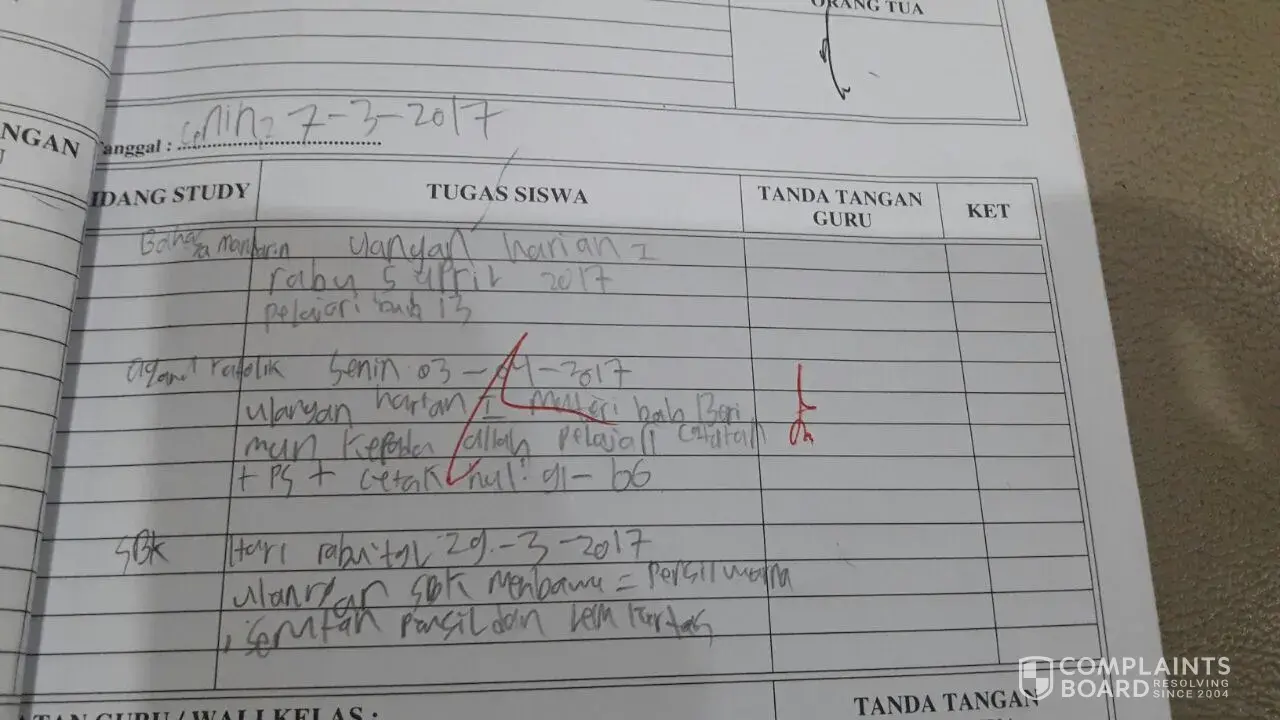 ORANG TUA
ANGAN
U
anggal : senin, 7-3-2017
IDANG STUDY TUGAS SISWA TANDA TANGAN GURU KET
Bahasa mandarin ulangan harian I
rabu 5 april 2017
pelajari bab 13
agama katolik Senin 03-04-2017
ulangan harian I materi bab Beri
man kepada allah pelajari catatan
+ PS + cetak hal: 91-
SBK Hari rabu tgl 29-3-2017
ulangan SBK membawa = pensil warna
, serutan pensil dan lem kertas
ATAN GURU / WALI KELAS :
TANDA TANGAN
COMPLAINTS
BOARD RESOLVING SINCE 2004